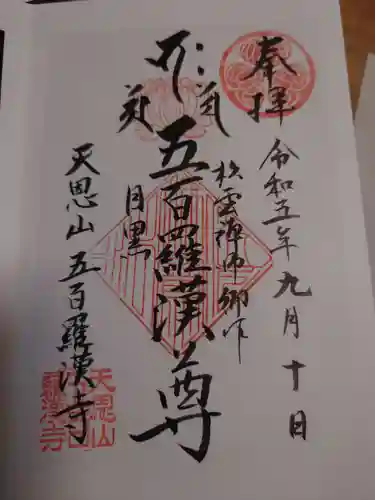 奉拝
令和五年九月十日
松雲禅師御作
五百羅漢尊
目黒
天恩山五百羅漢寺
天恩山
羅漢寺